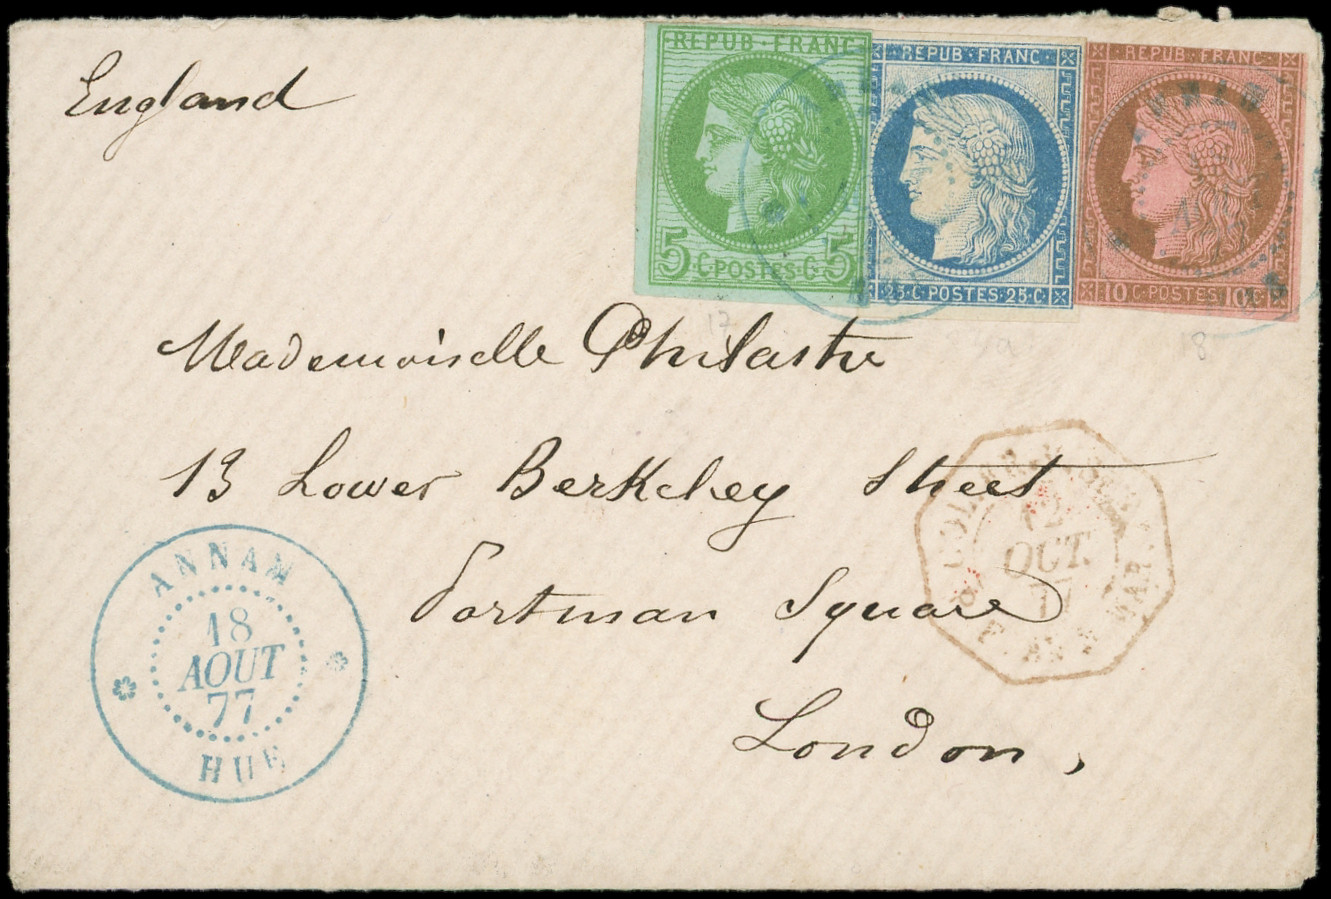 England
REPUB · FRANC
5 · C · POSTES · C · 5
REPUB · FRANC
25 · C · POSTES · 25 · C
REPUB · FRANC
10 C · POSTES · 10 C
17
18
Mademoiselle Philastre
13 Lower Berkeley Street
Portman Square
London,
ANNAM
18
AOUT
77
HUE
12
OCT.
77